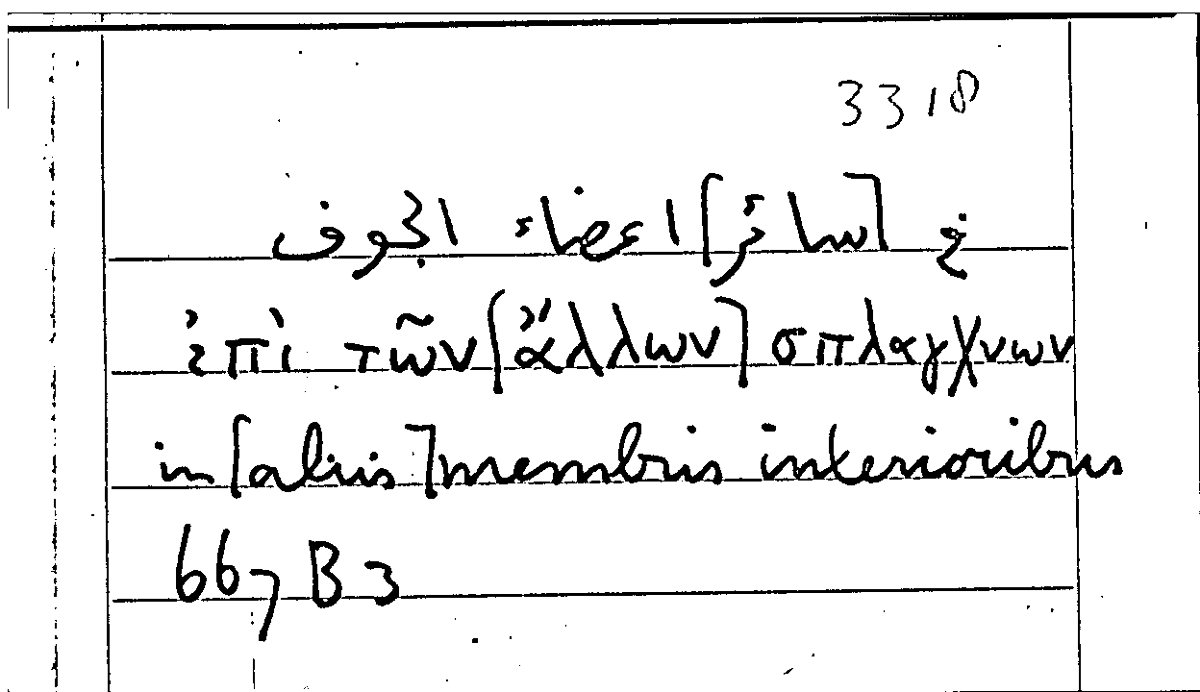 3318
في [سائر] اعضاء الجوف
ἐπὶ τῶν [ἄλλων] σπλαγχνων
in [aliis] membris interioribus
667 B 3